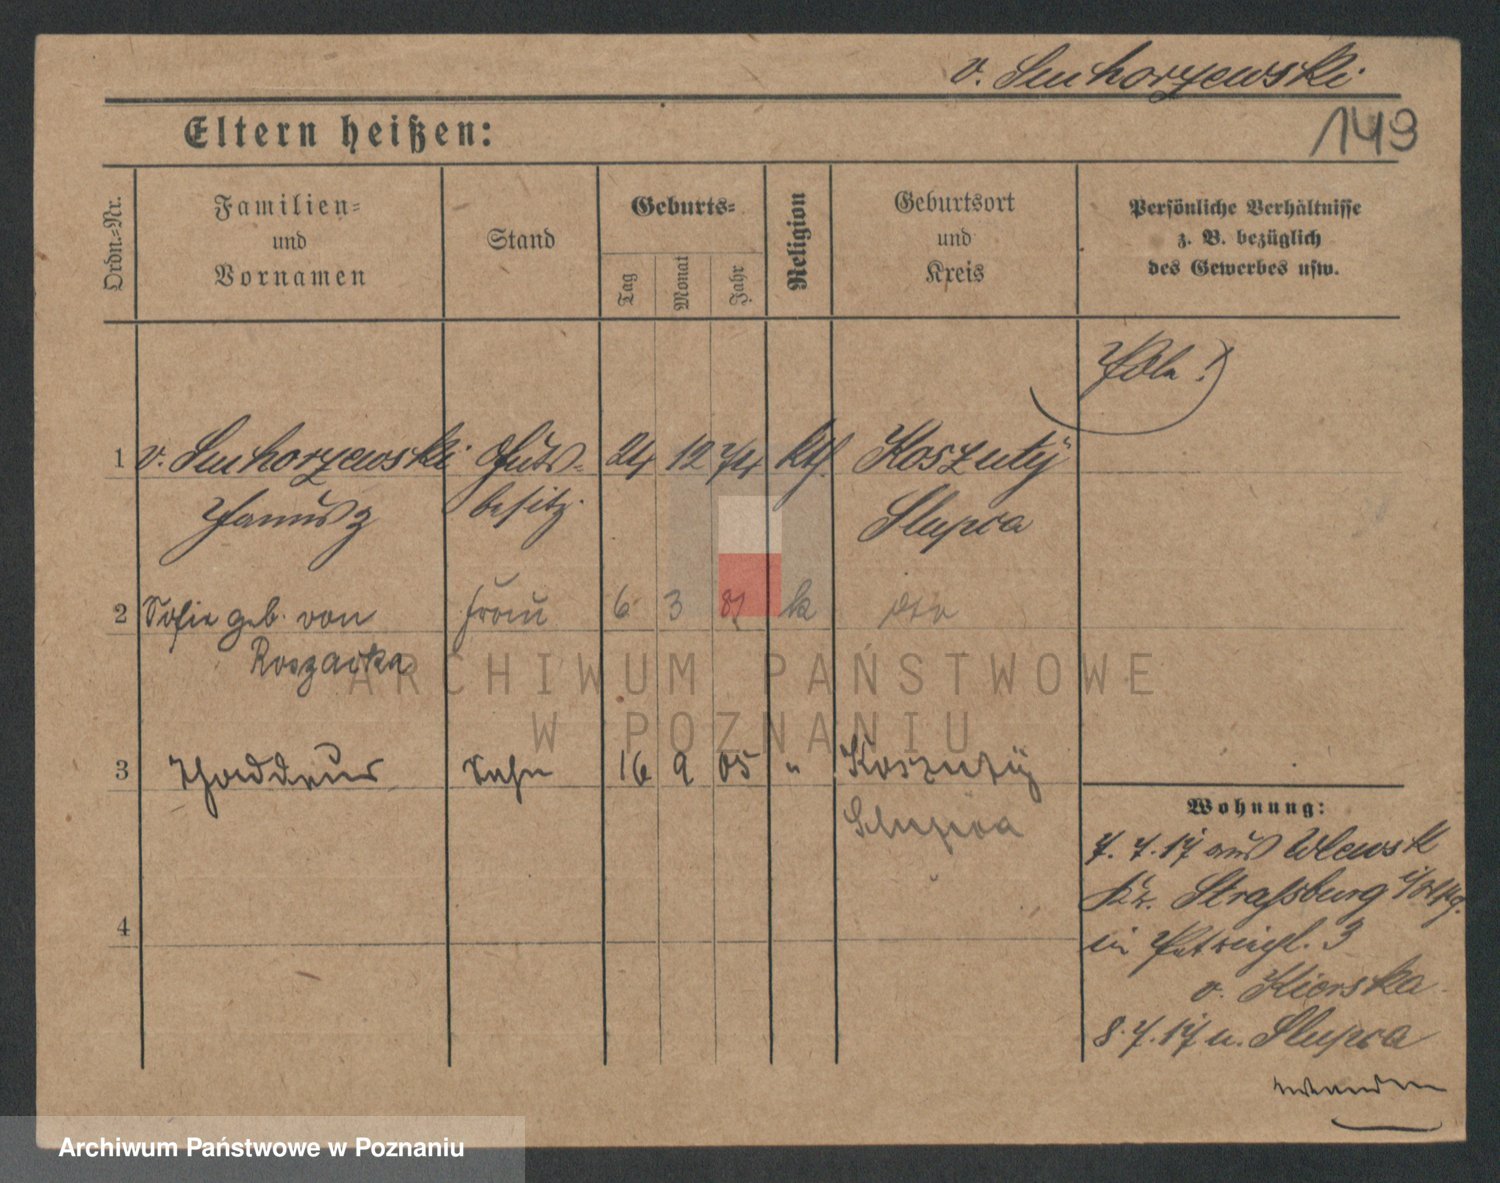 v. Suchorzewski
149
Eltern heißen:
Ordn.-Nr.
Familien-
und
Vornamen
Stand
Geburts-
Tag
Monat
Jahr
Religion
Geburtsort
und
Kreis
Persönliche Verhältnisse
z. B. bezüglich
des Gewerbes usw.
Pole!
1 v. Suchorzewski Guts- 24 12 74 kth. Koszuty
Janusz besitz. Slupca
2 Sofie geb. von Frau 6 3 87 k dto
3 Thaddeus Sohn 16 9 05 " Koszuty
Slupca
4
Wohnung:
7. 7. 17 aus Wlewsk
Kr. Strassburg i/Wpr.
in Petripl. 3
v. Kierska
8. 7. 17 n. Slupca
ARCHIWUM PAŃSTWOWE
W POZNANIU
Archiwum Państwowe w Poznaniu